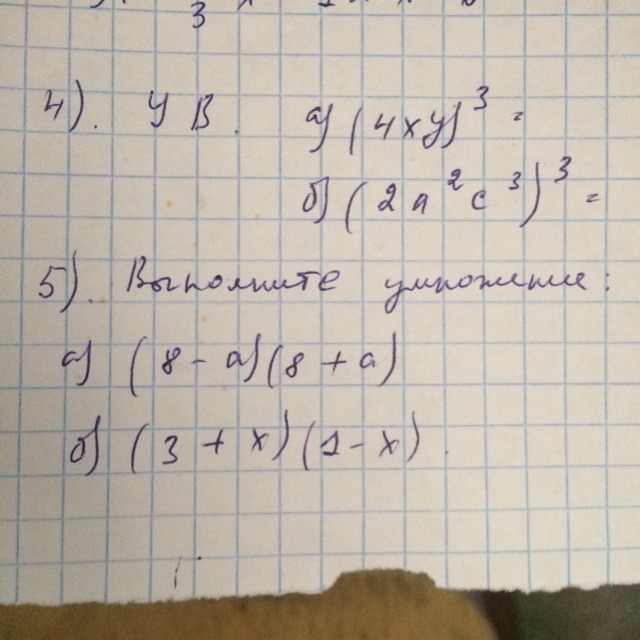 4). УВ. а) (4xy)³ =
б) (2a²c³)³ =
5). Выполните умножение:
а) (8 - a)(8 + a)
б) (3 + x)(1 - x).